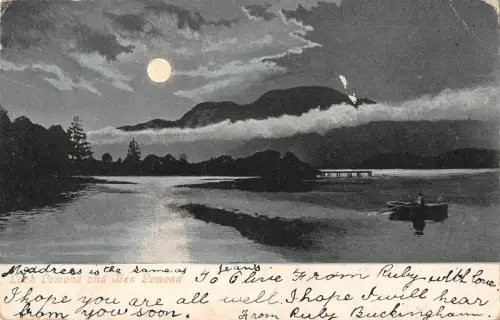 Loch Lomond and Ben Lomond
My address is the same as Jean's
To Olive From Ruby with love,
I hope you are all well. I hope I will hear
from you soon. From Ruby Buckingham.